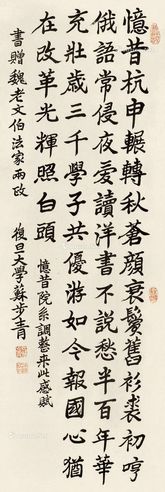 憶昔杭申輾轉秋蒼顏衰鬢舊衫裘初哼
俄語常侵夜爰讀洋書不說愁半百年華
充壯歲三千學子共優游如今報國心猶
在改革光輝照白頭
憶昔院系調整來此感賦
書贈魏老文伯法家兩改
復旦大學蘇步青